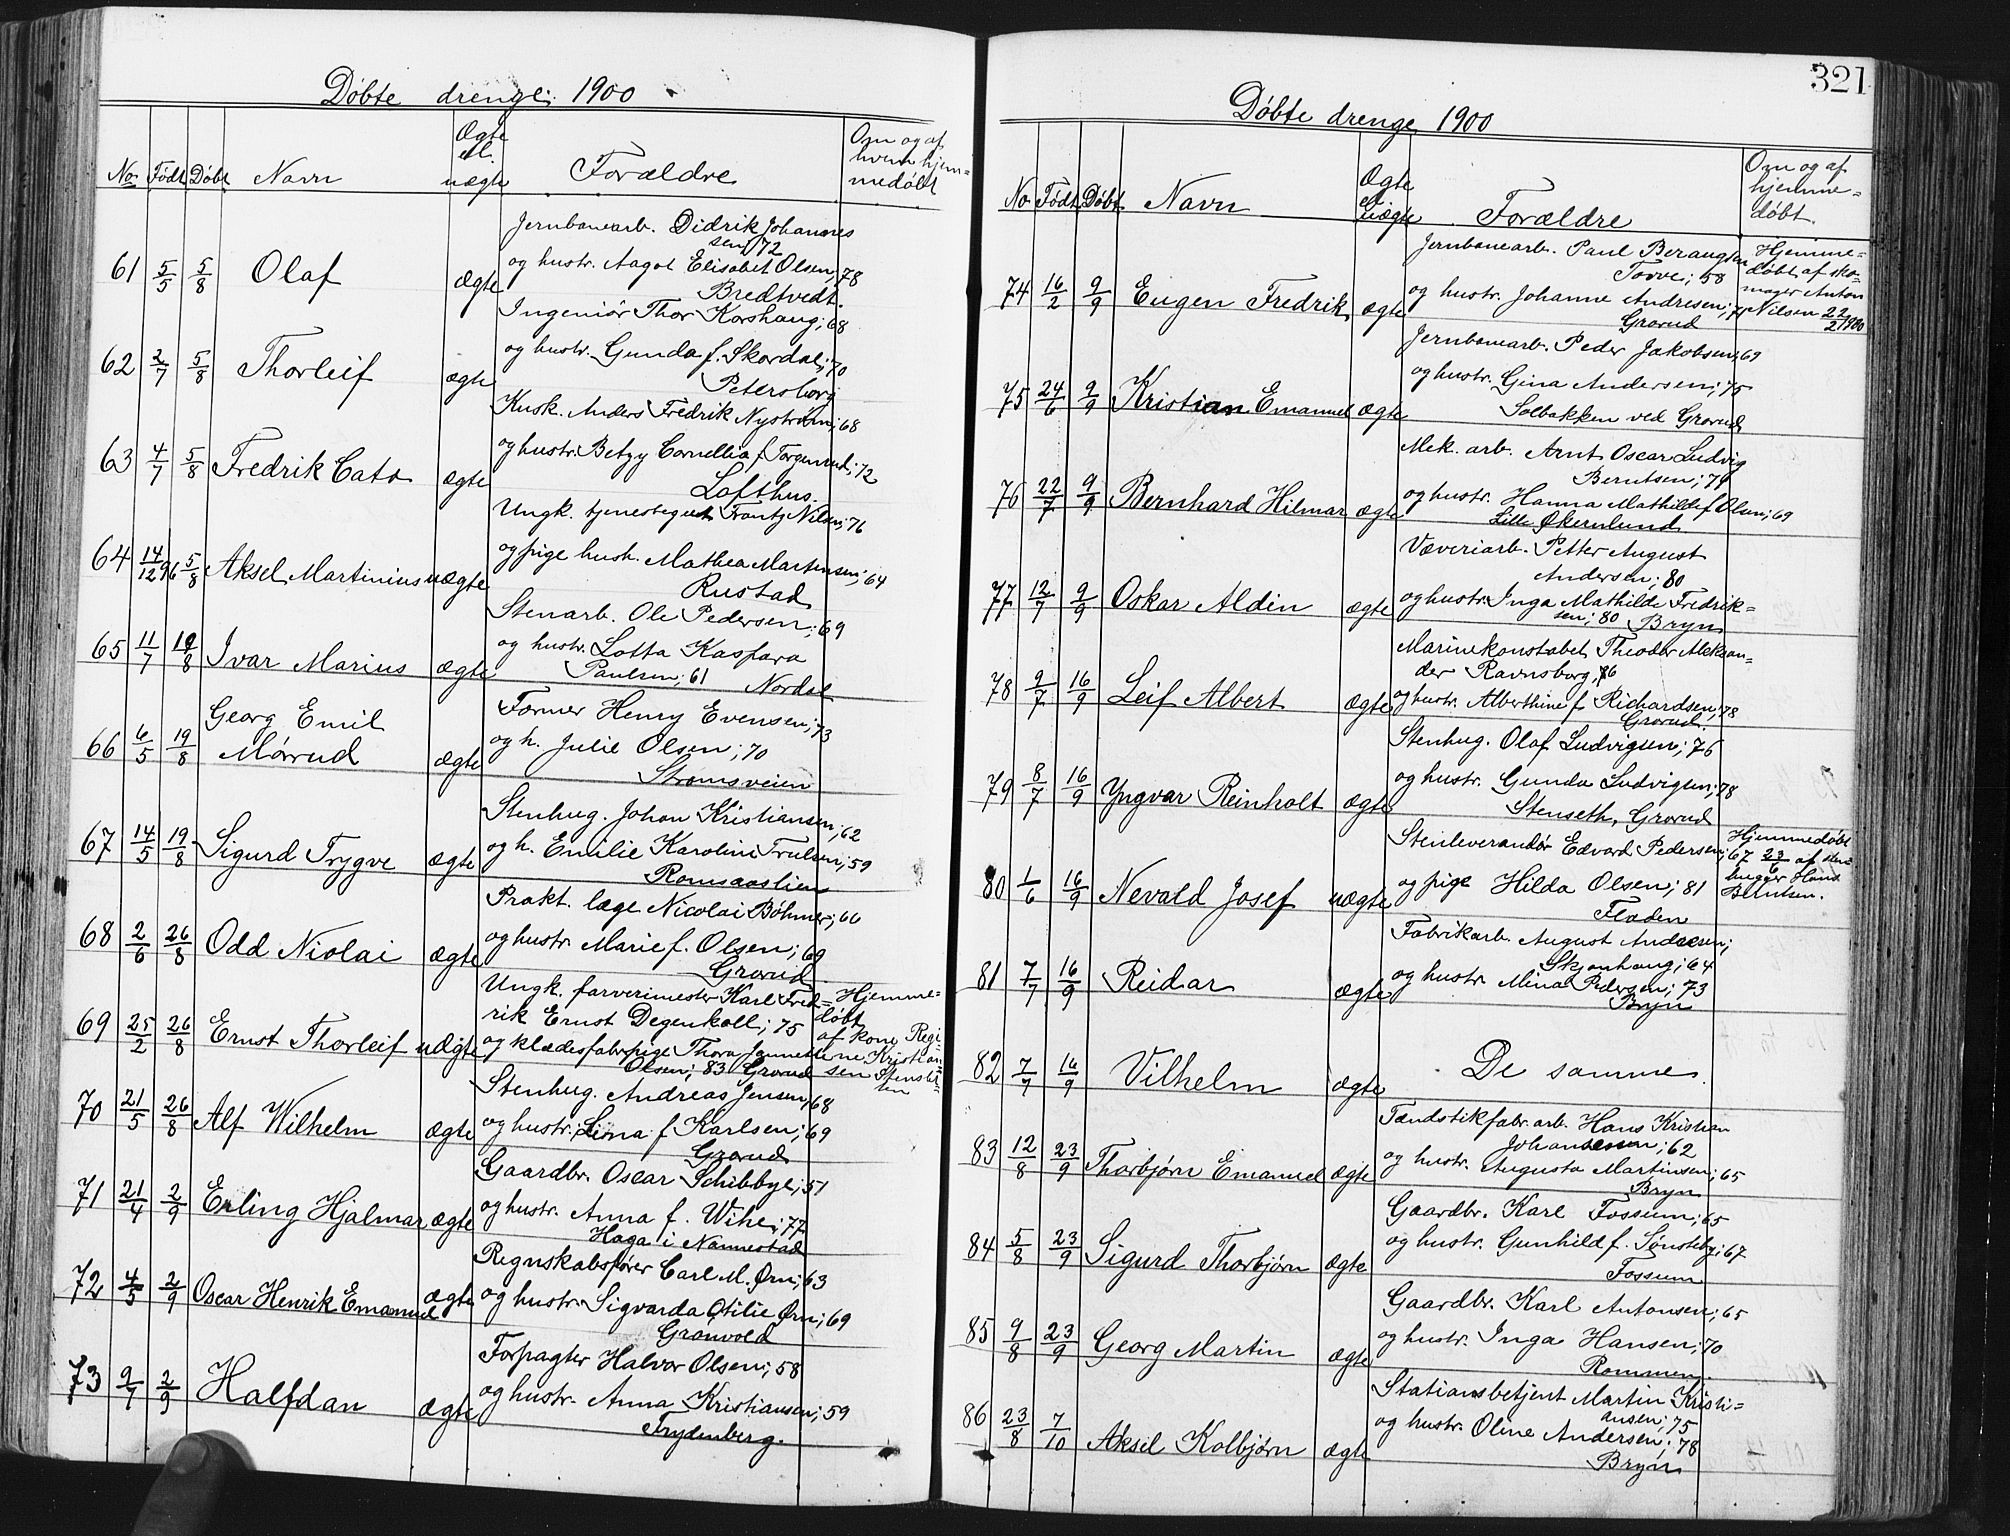 Døbte drenge 1900
No Født Døbt Navn Ægte el. uægte Forældre Om og af hvem hjem=medøbt
Jernbanearb. Didrik Johannes
sen, 72
61 5/5 5/8 Olaf ægte og hustr. Aagot Elisabet Olsen, 78
Bredtvedt.
Ingeniör Thor Korshaug; 68
62 2/7 5/8 Thorleif ægte og hustr. Gunda f. Skordal; 70
Petersborg
Kusk. Anders Fredrik Nyström; 68
63 4/7 5/8 Fredrik Cato ægte og hustr. Betzy Cornellia f. 72
Lofthus.
Ungk. tjenestegut Frantz Nilsen; 76
64 14/12 96 5/8 Aksel Martinius uægte og pige hush. Mathea Martinsen; 64
Rustad
Stenarb. Ole Pedersen; 69
65 11/7 /8 Ivar Marius ægte og hustr. Lotta Kaspara
Paulsen; 61 Nordal
Former Henry Evensen; 73
66 6/5 19/8 Georg Emil Mørud ægte og h. Julie Olsen; 70
Strømsveien
Stenhug. Johan Kristiansen; 62
67 14/5 19/8 Sigurd Trygve ægte og h. Emilie Karoline Trulsen; 59
Romsaaslien
Prakt. læge Nicolai Böhmer; 66
68 2/6 26/8 Odd Niolai ægte og hustr. Marie f. Olsen; 69
Grorud
Ungk. farverimester Karl Fred= Hjemme=
rik Ernst Degenkoll; 75 døbt
69 25/2 26/8 Ernst Thorleif uægte og klædesfabrpige Thora Jannette af kone Regi=
Olsen; 83 Grorud ne Kristian=
sen
Stenhug. Andreas Jensen, 68
70 21/5 26/8 Alf Wilhelm ægte og hustr. f. Karlsen; 69
Grorud
Gaardbr. Oscar Schibbye; 51
71 21/4 2/9 Erling Hjalmar ægte og hustr. Anna f. Wihe; 77
Haga i Nannestad
Regnskabsfører Carl M. Ørn; 63
72 4/5 2/9 Oscar Henrik Emanuel ægte og hustr. Sigvarda Otilie Ørn; 69
Grønvold
Forpagter Halvor Olsen; 58
73 9/7 2/9 Halfdan ægte og hustr. Anna Kristiansen; 59
Frydenberg.
321
Døbte drenge 1900
No Født Døbt Navn Ægte el uægte Forældre Om og af hjemme=døbt.
Jernbanearb. Paul Hjemme=
Torve; 58 døbt af sko=
74 16/2 9/9 Eugen Fredrik ægte og hustr. Johanne Andresen; mager Anton
Grorud Nilsen 22/2 1900
Jernbanearb. Peder Jakobsen; 69
75 24/6 9/9 Kristian Emanuel ægte og hustr. Gina Andersen; 75
Solbakken ved Grorud
Mek. arb. Arnt Oscar Ludvig
Berntsen;
76 22/7 9/9 Bernhard Hilmar ægte og hustr. Hanna Mathilde f. Olsen; 69
Lille Økernlund
Væveriarb. Petter August
Andersen; 80
77 12/7 9/9 Oskar Aldin ægte og hustr. Inga Mathilde Fredrik=
sen; 80 Bryn
Marinekonstabel Theodor Aleksan=
der Ravnsborg, 76
78 9/7 16/9 Leif Albert ægte og hustr. Alberthine f. Richardsen; 78
Grorud
Stenhug. Olaf Ludvigsen; 76
79 8/7 16/9 Yngvar Reinholt ægte og hustr. Gunda Ludvigsen; 78
Stenseth, Grorud
Stenleverandør Edvard Pedersen; 67 Hjemmedøbt
23/6 af sten=
80 1/6 16/9 Nevald Josef uægte og pige Hilda Olsen; 81 hugger Hans
Fladen Berntsen.
Fabrikarb. August Andresen;
Skjønhaug; 64
81 7/7 16/9 Reidar ægte og hustr Mina Pedersen; 73
Bryn
82 7/7 16/9 Vilhelm ægte De samme.
Tændstikfabr. arb. Hans Kristian
Johannessen; 62
83 12/8 23/9 Thorbjørn Emanuel ægte og hustr. Augusta Martinsen; 65
Bryn
Gaardbr. Karl Fossum; 65
84 5/8 23/9 Sigurd Thorbjørn ægte og hustr. Gunhild f. Sønsteby; 67
Fossum
Gaardbr. Karl Antonsen; 65
85 9/8 23/9 Georg Martin ægte og hustr. Inga Hansen; 70
Rommen.
Stationsbetjent Martin Kristi=
ansen; 75
86 23/8 7/10 Aksel Kolbjørn ægte og hustr. Oline Andersen; 78
Bryn